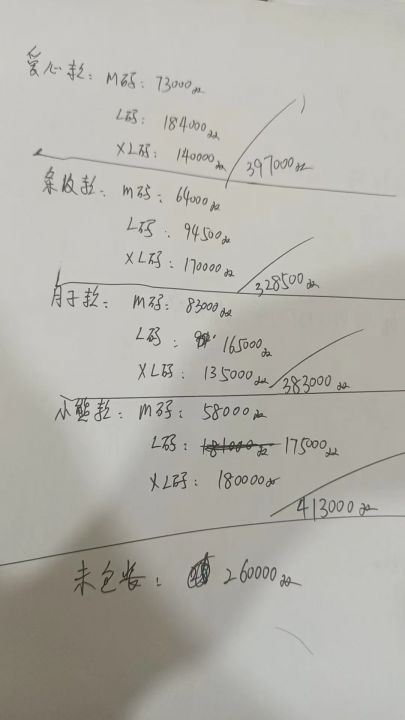 爱心款：M码：73000双
L码：184000双
XL码：140000双
397000双
条纹款：M码：64000双
L码：94500双
XL码：170000双
328500双
月子款：M码：83000双
L码：165000双
XL码：135000双
383000双
小熊款：M码：58000双
L码：181000双 175000双
XL码：180000双
413000双
未包装：260000双